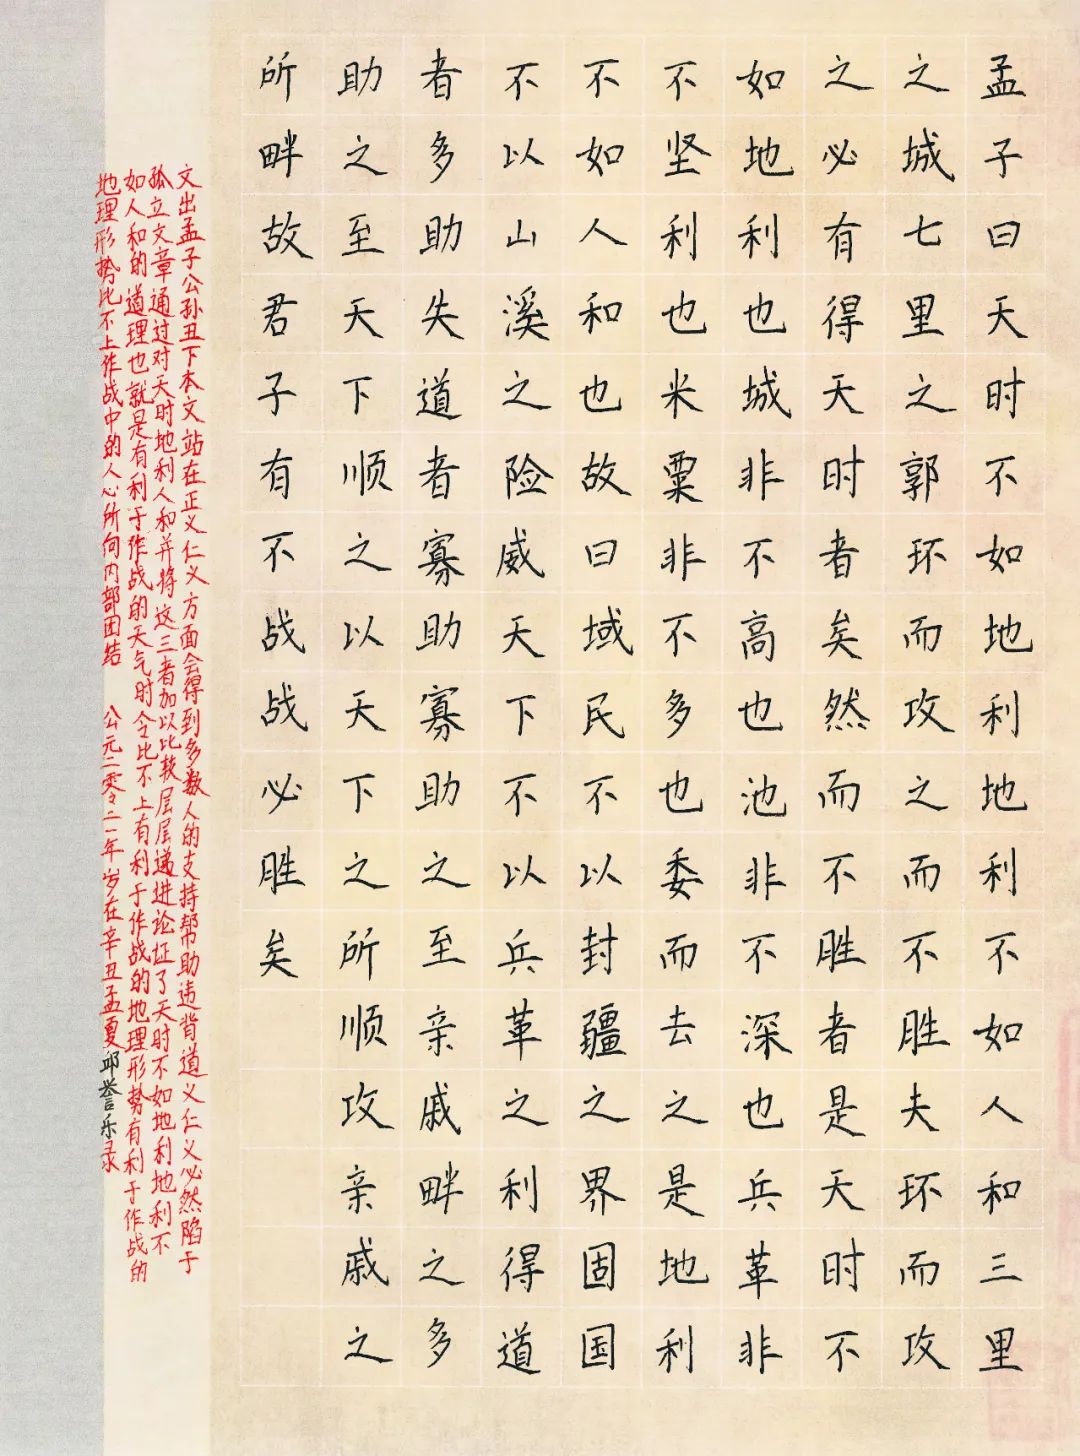 孟子曰天时不如地利地利不如人和三里
之城七里之郭环而攻之而不胜夫环而攻
之必有得天时者矣然而不胜者是天时不
如地利也城非不高也池非不深也兵革非
不坚利也米粟非不多也委而去之是地利
不如人和也故曰域民不以封疆之界固国
不以山溪之险威天下不以兵革之利得道
者多助失道者寡助寡助之至亲戚畔之多
助之至天下顺之以天下之所顺攻亲戚之
所畔故君子有不战战必胜矣
文出孟子公孙丑下本文站在正义仁义方面会得到多数人的支持帮助违背道义仁义必然陷于
孤立文章通过对天时地利人和并将这三者加以比较层层递进论证了天时不如地利地利不
如人和的道理也就是有利于作战的天气时令比不上有利于作战的地理形势有利于作战的
地理形势比不上作战中的人心所向内部团结 公元二零二一年岁在辛丑孟夏邱誉乐录